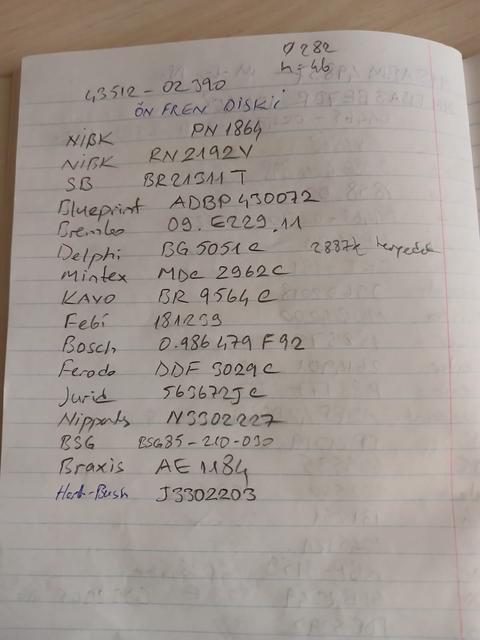 Ø 282
h=46
43512-02390
ÖN FREN DİSKİ
NiBK PN1864
NiBK RN2192V
SB BR21311T
Blueprint ADBP430072
Brembo 09.E229.11
Delphi BG5051C 2887₺ heryedek
Mintex MDC 2962C
KAVO BR 9564C
Febi 181239
Bosch 0.986 479 F92
Ferodo DDF 3029C
Jurid 563672JC
Nipparts N3302227
BSG BSG85-210-030
Braxis AE1184
Hert-Bush J3302203